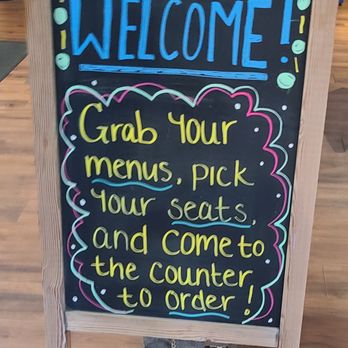 WELCOME!
Grab Your
menus, pick
Your seats,
and come to
the counter
to order!